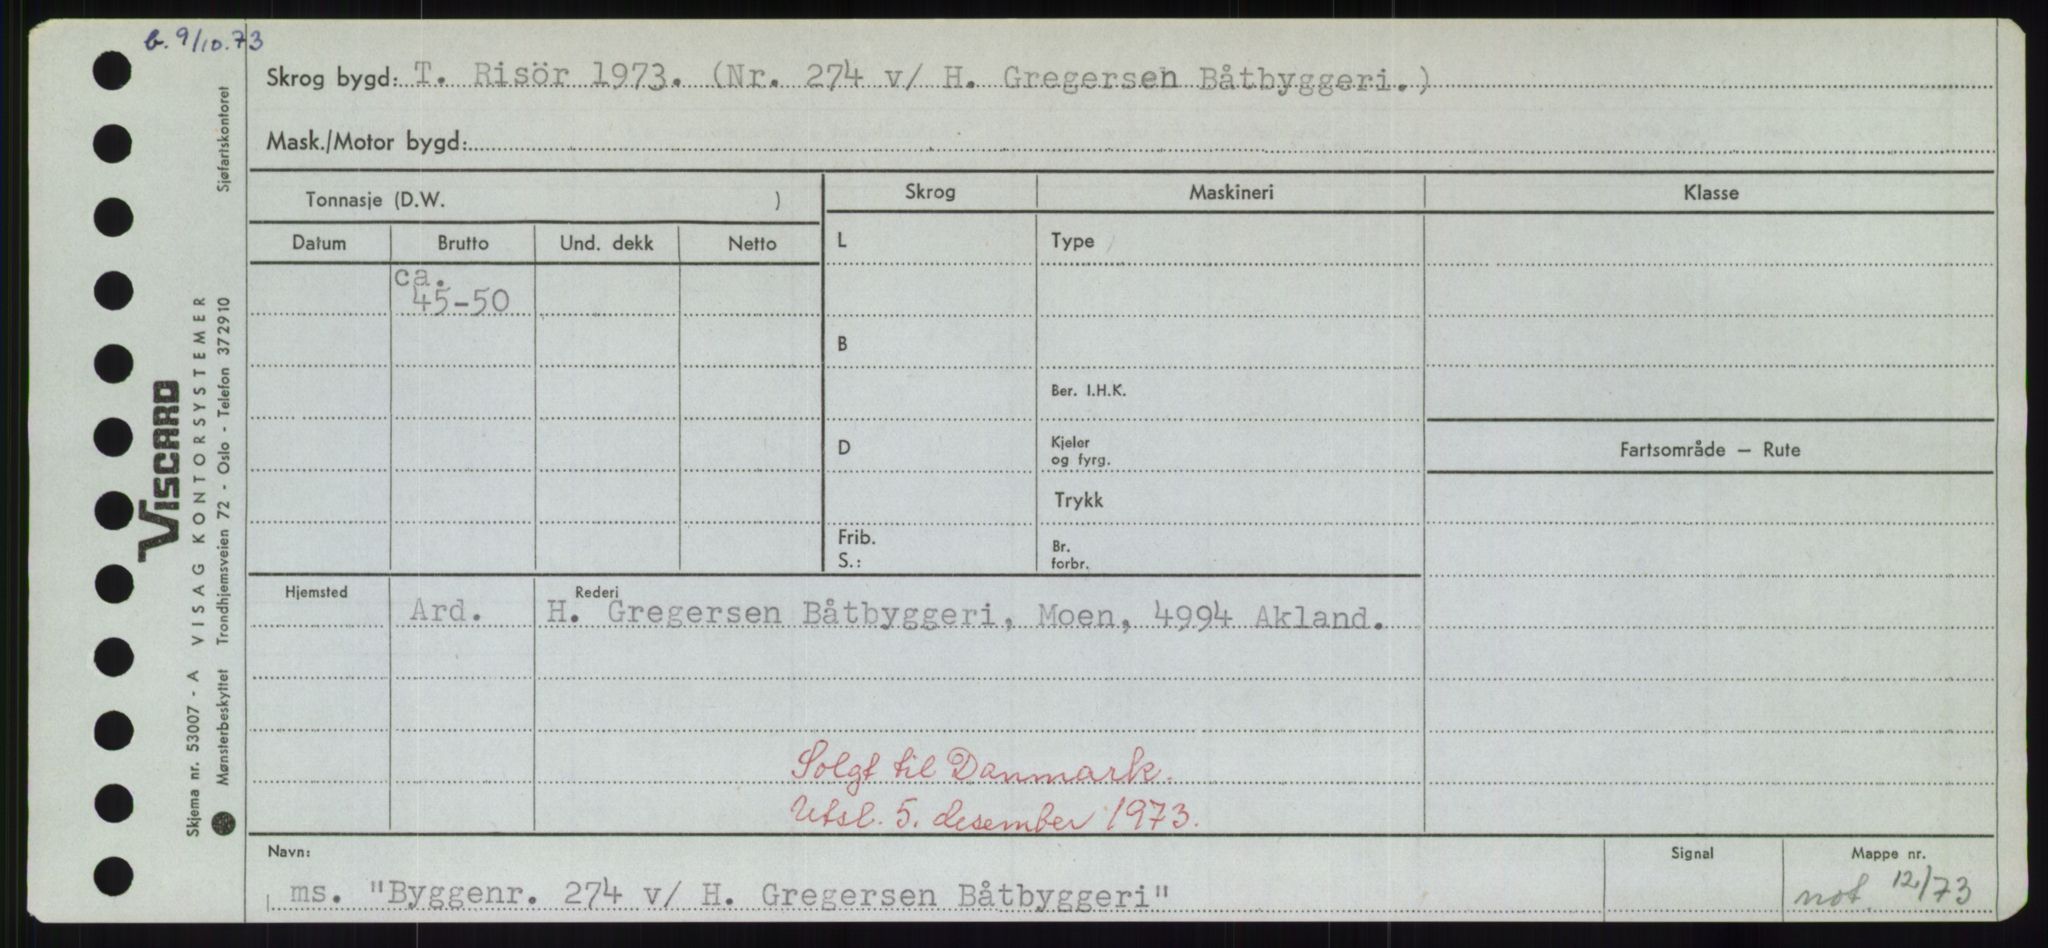 b. 9/10.73
Skrog bygd: T. Risör 1973. (Nr. 274 v/ H. Gregersen Båtbyggeri.)
Mask./Motor bygd:
Tonnasje (D.W. )
Skrog
Maskineri
Klasse
Datum
Brutto
Und. dekk
Netto
L
Type
ca.
45-50
B
Ber. I.H.K.
D
Kjeler
og fyrg.
Fartsområde — Rute
Trykk
Frib.
S.:
Br.
forbr.
Hjemsted
Rederi
Ard.
H. Gregersen Båtbyggeri, Moen, 4994 Akland.
Solgt til Danmark.
Utsl. 5. desember 1973.
Navn:
Signal
Mappe nr.
ms. "Byggenr. 274 v/ H. Gregersen Båtbyggeri"
not. 12/73
VISCARD
Skjema nr. 53007 - A VISAG KONTORSYSTEMER
Mønsterbeskyttet Trondhjemsveien 72 - Oslo - Telefon 372910 Sjøfartskontoret